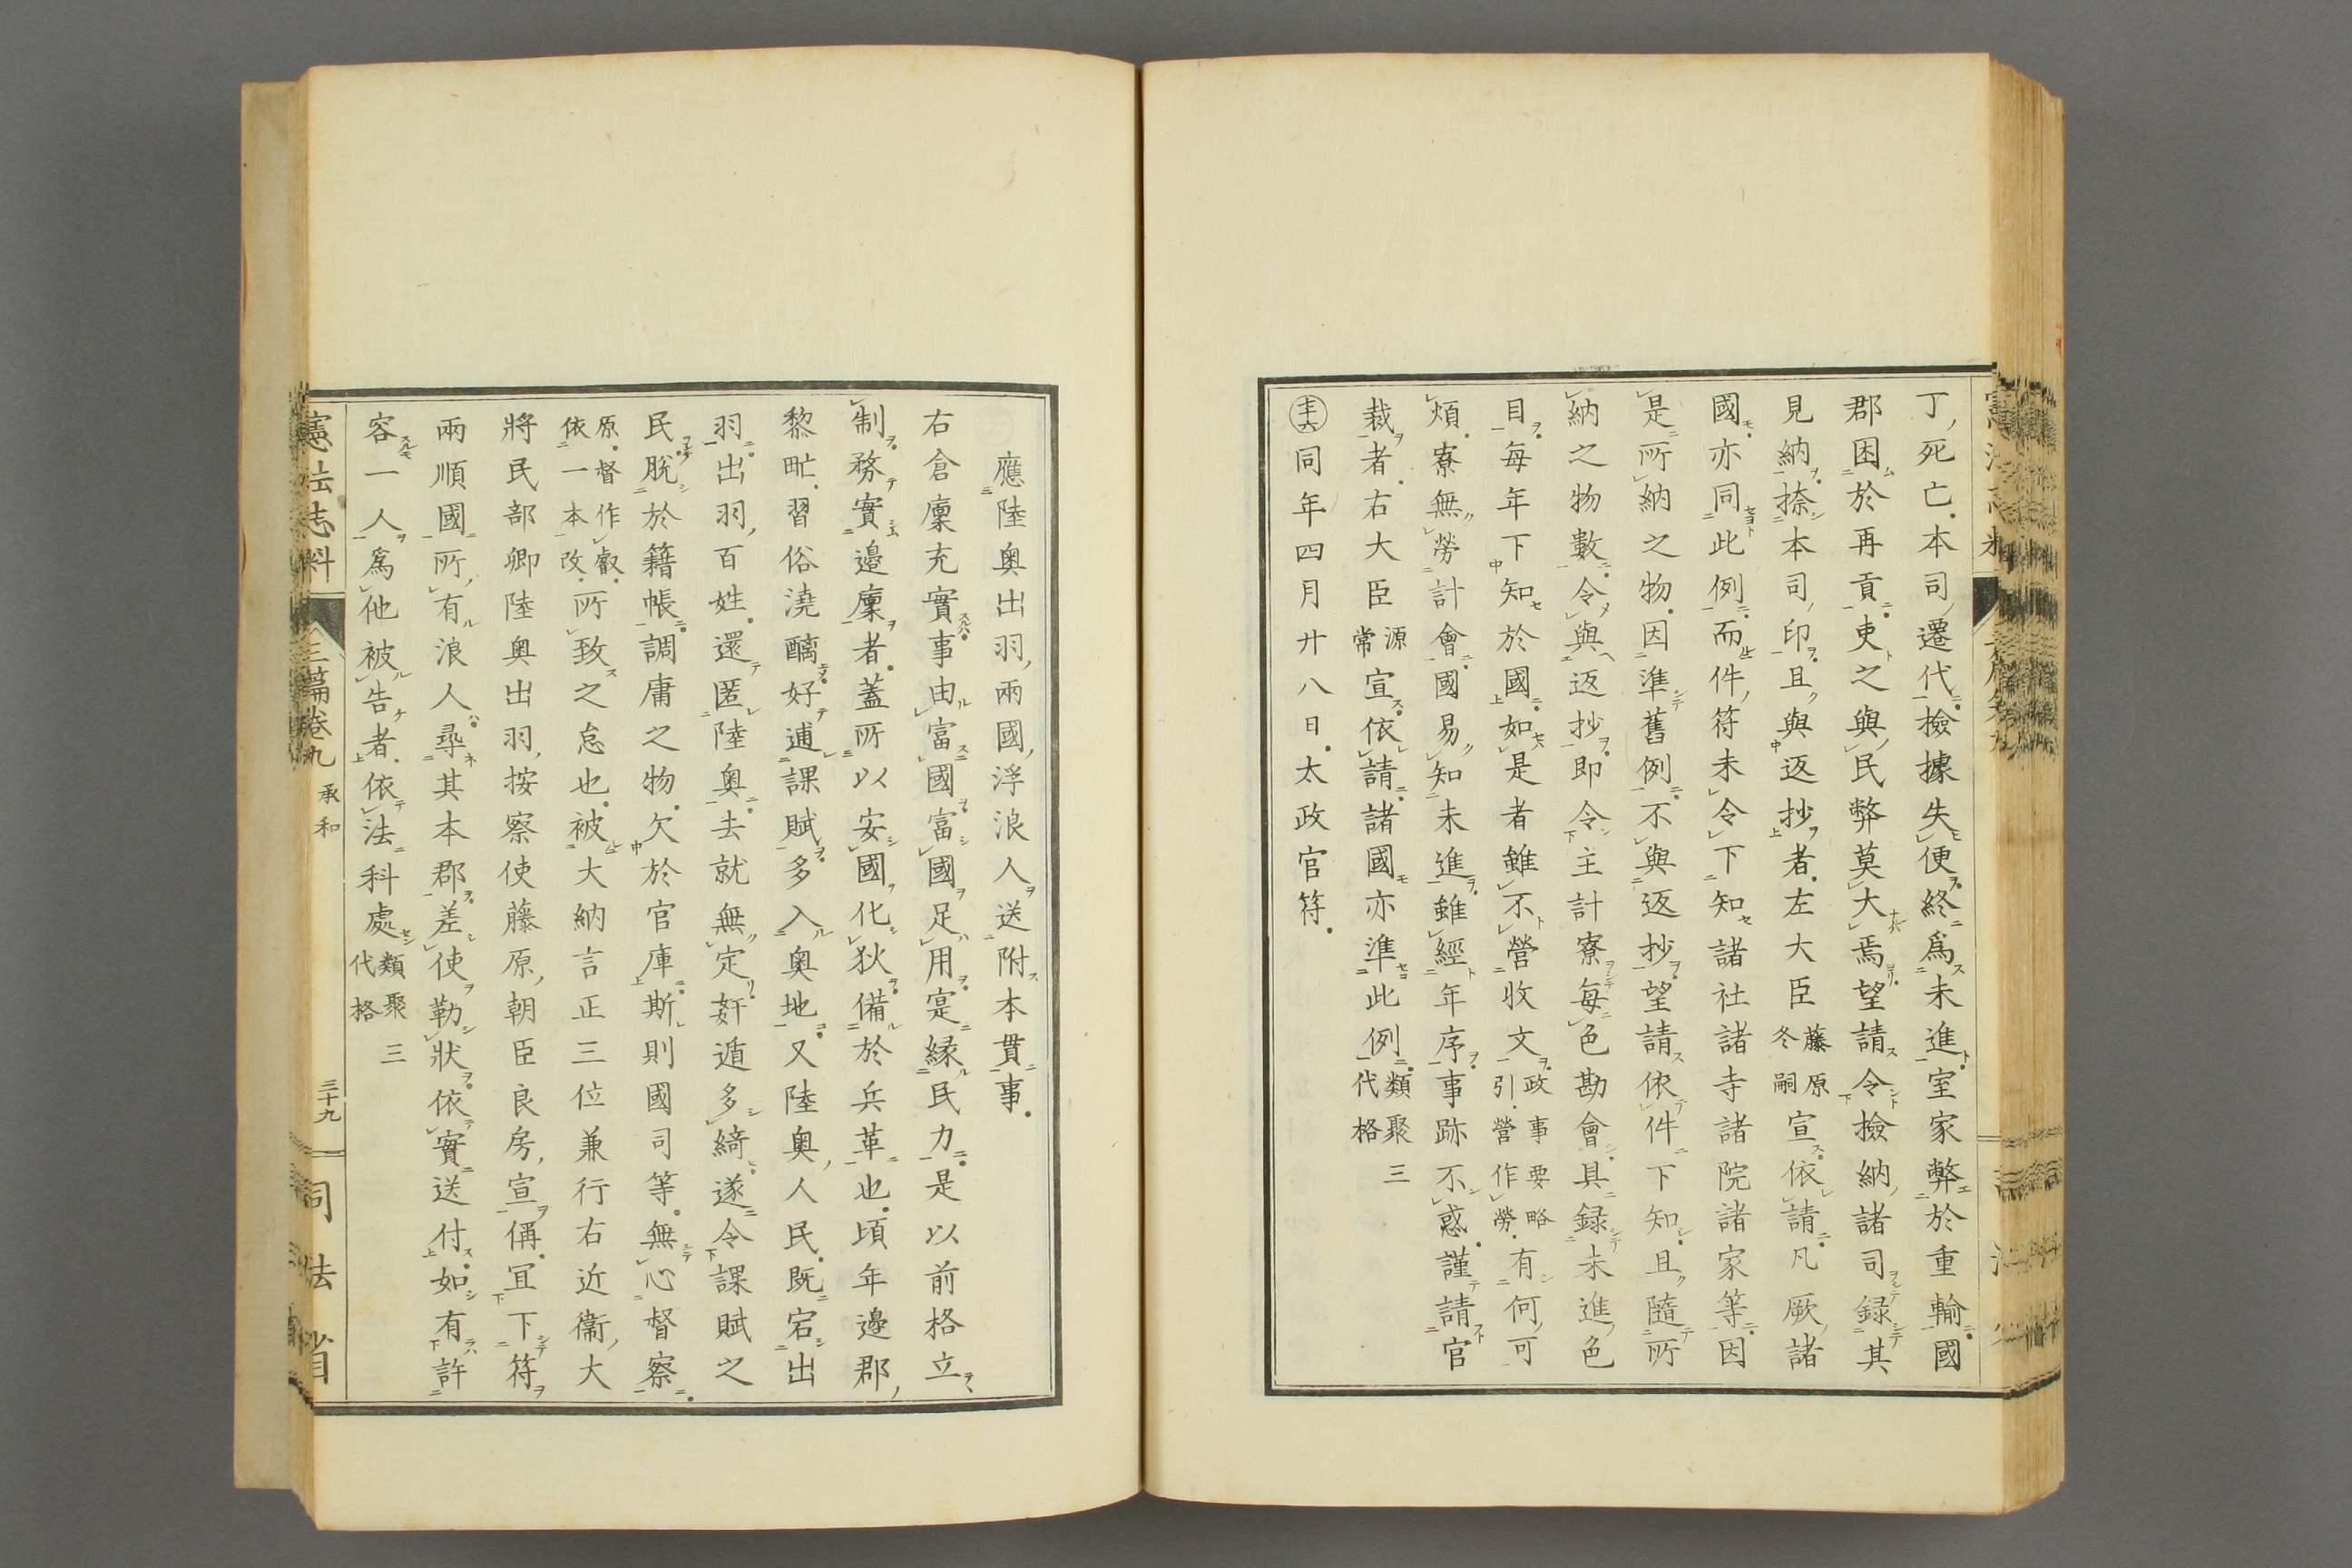 丁死亡本司遷代檢據失便終爲未進室家弊於重輸國
郡困於再貢吏之與民弊莫大焉望請令檢納諸司録其
見納捺本司印且與返抄者左大臣藤原冬嗣宣依請凡厥諸
國亦同此例而件符未令下知諸社諸寺諸院諸家等因
是所納之物因準舊例不與返抄望請依件下知且隨所
納之物數令與返抄即令主計寮毎色勘會具録未進色
目毎年下知於國如是者雖不營收文政事要略引營作勞有何可
煩寮無勞計會國易知未進雖經年序事跡不惑謹請官
裁者右大臣源常宣依請諸國亦準此例類聚三代格
同年四月廿八日太政官符
應陸奥出羽兩國浮浪人送附本貫事
右倉廩充實事由富國富國足用寔縁民力是以前格立
制務實邊廩者蓋所以安國化狄備於兵革也頃年邊郡
黎甿習俗澆醨好逋課賦多入奥地又陸奥人民既宕出
羽出羽百姓還匿陸奥去就無定奸遁多綺遂令課賦之
民脱於籍帳調庸之物欠於官庫斯則國司等無心督察
原督作叡依一本改所致之怠也被大納言正三位兼行右近衞大
將民部卿陸奥出羽按察使藤原朝臣良房宣偁冝下符
兩順國所有浪人尋其本郡差使勒狀依實送付如有許
容一人爲他被告者依法科處類聚三代格
憲法志料 三篇卷九 承和 三十九 司法省